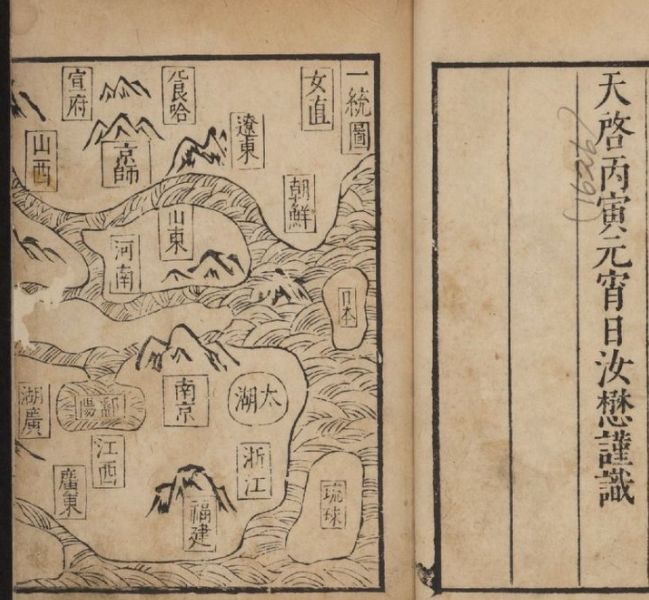 天啓丙寅元宵日汝懋謹識
(1626)
一統圖
女直
朝鮮
日本
琉球
遼東
兀良哈
宣府
京師
山西
山東
河南
南京
太湖
浙江
鄱陽
湖廣
江西
廣東
福建